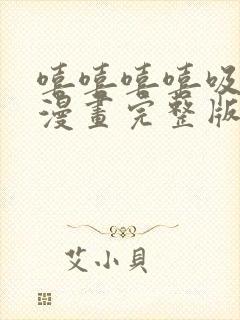 嘻嘻嘻嘻吸
漫畫完整版
艾小貝